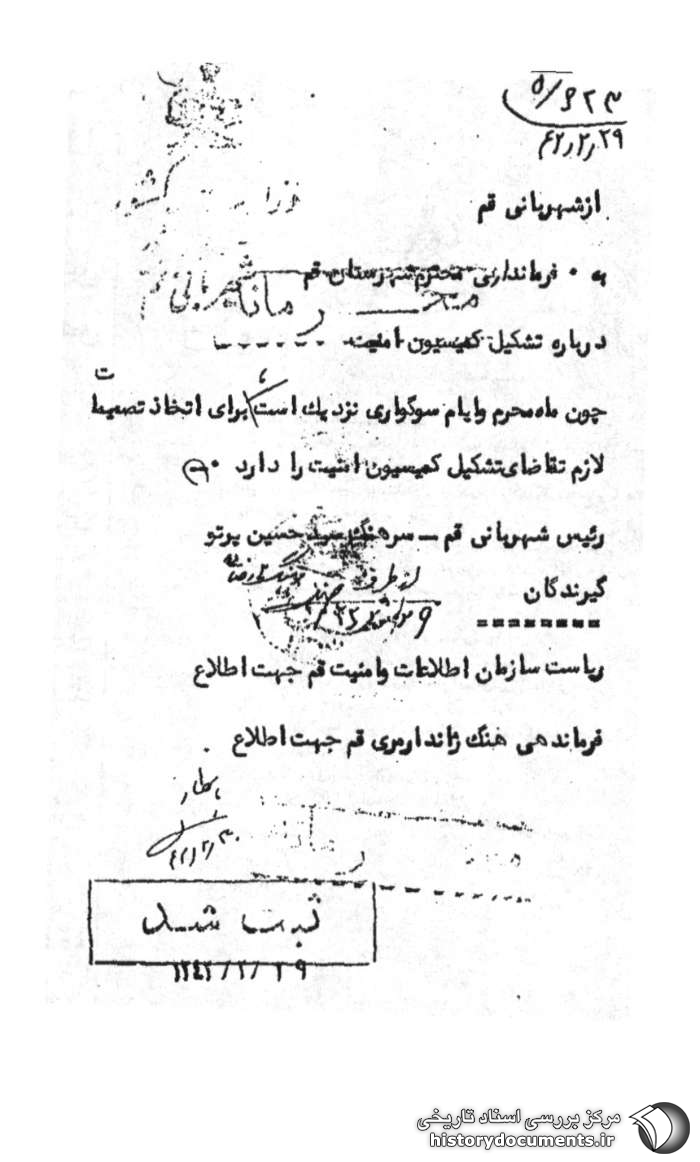 ۴۲/۲/۲۹
وزارت کشور
از شهربانی قم
به ۰ فرمانداری محترم شهرستان قم
شهربانی قم
محرمانه
درباره تشکیل کمیسیون امنیت
چون ماه محرم و ایام سوگواری نزدیک است برای اتخاذ تصمیمات
لازم تقاضای تشکیل کمیسیون امنیت را دارد ۰
رئیس شهربانی قم ــ سرهنگ سید حسین پرتو
از طرف
گیرندگان
========
ریاست سازمان اطلاعات و امنیت قم جهت اطلاع
فرماندهی هنگ ژاندارمری قم جهت اطلاع
محرمانه
ثبت شد
۱۳۴۲/۲/۲۹
مرکز بررسی اسناد تاریخی
historydocuments.ir